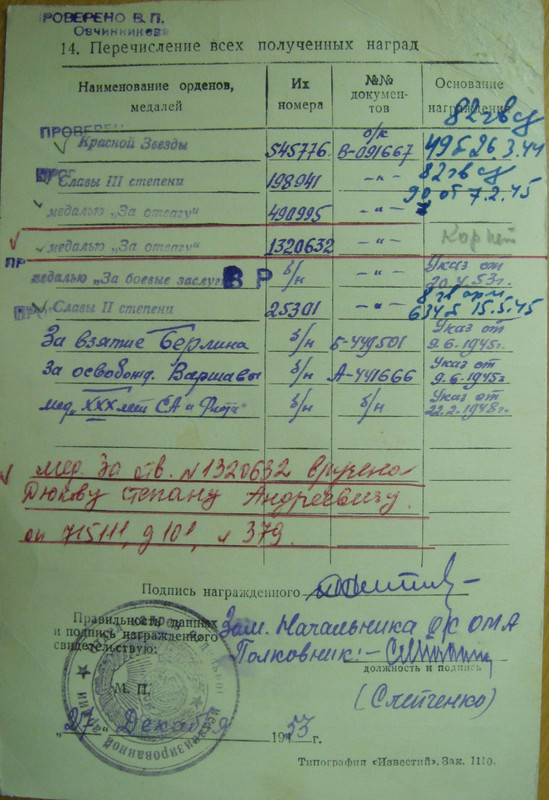 ПРОВЕРЕНО В. П.
Овчинникова
14. Перечисление всех полученных наград
Наименование орденов, медалей Их номера №№ документов Основание награждения
82 гв сд
ПРОВЕРЕН
Красной Звезды 545776 о/к В-091667 49 б 26.3.44
Славы III степени 198941 -"- 82 гв сд 90 от 7.2.45
медалью „За отвагу" 490995 -"-
медалью „За отвагу" 1320632 -"- Кор нет
ПР
медалью „За боевые заслуги" В Р б/н -"- Указ от
Славы II степени 25301 -"- 8 гв арм 634 б 15.5.45
За взятие Берлина б/н Б-441501 Указ от 9.6.1945г.
За освобожд. Варшавы б/н А-441666 Указ от 9.6.1945г
мед. „XXX лет СА и Флота" б/н б/н Указ от 22.2.1948г.
мед. За отв. N1320632 вручено
Дюкову Степану Андреевичу.
оп 715111, д 101, л 379.
Подпись награжденного
Правильность данных
и подпись награжденного
свидетельствую:
Зам. Начальника о/к ОМА
Полковник: -
должность и подпись
М. П.
(Слепченко)
„27" Декабря 1953 г.
Типография «Известий». Зак. 1110.